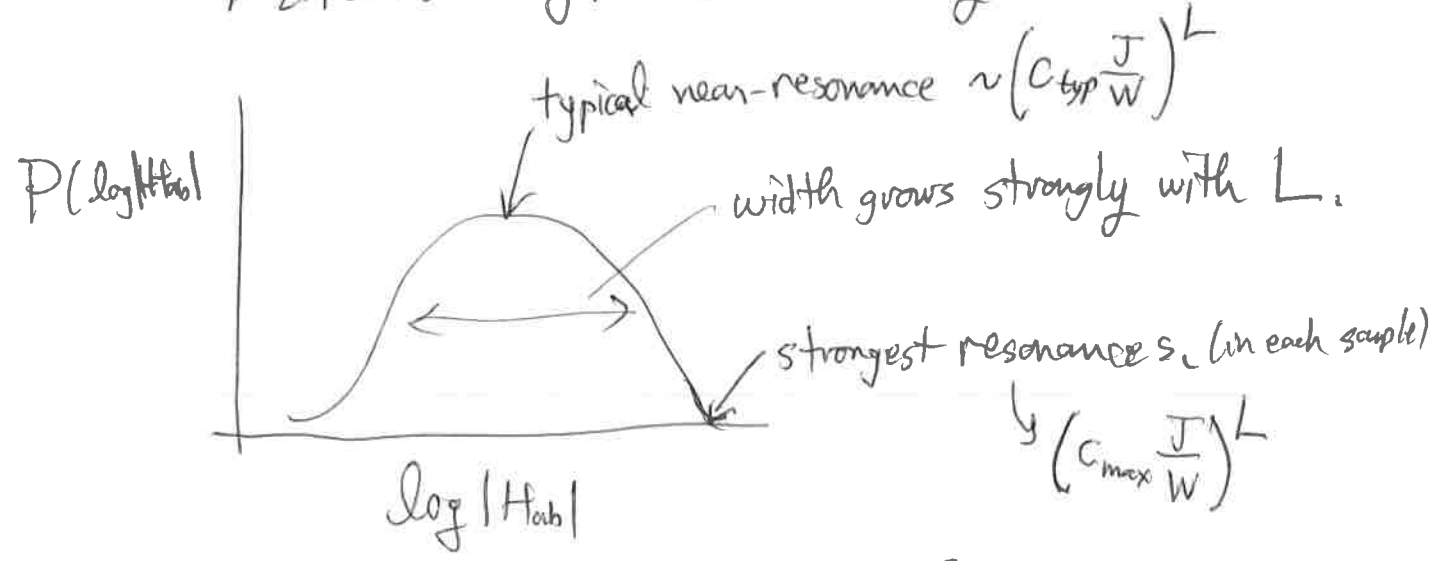 typical near-resonance ~(C_typ J/W)^L
P(log|Hab|
width grows strongly with L.
strongest resonances. (in each sample)
(C_max J/W)^L
log|Hab|